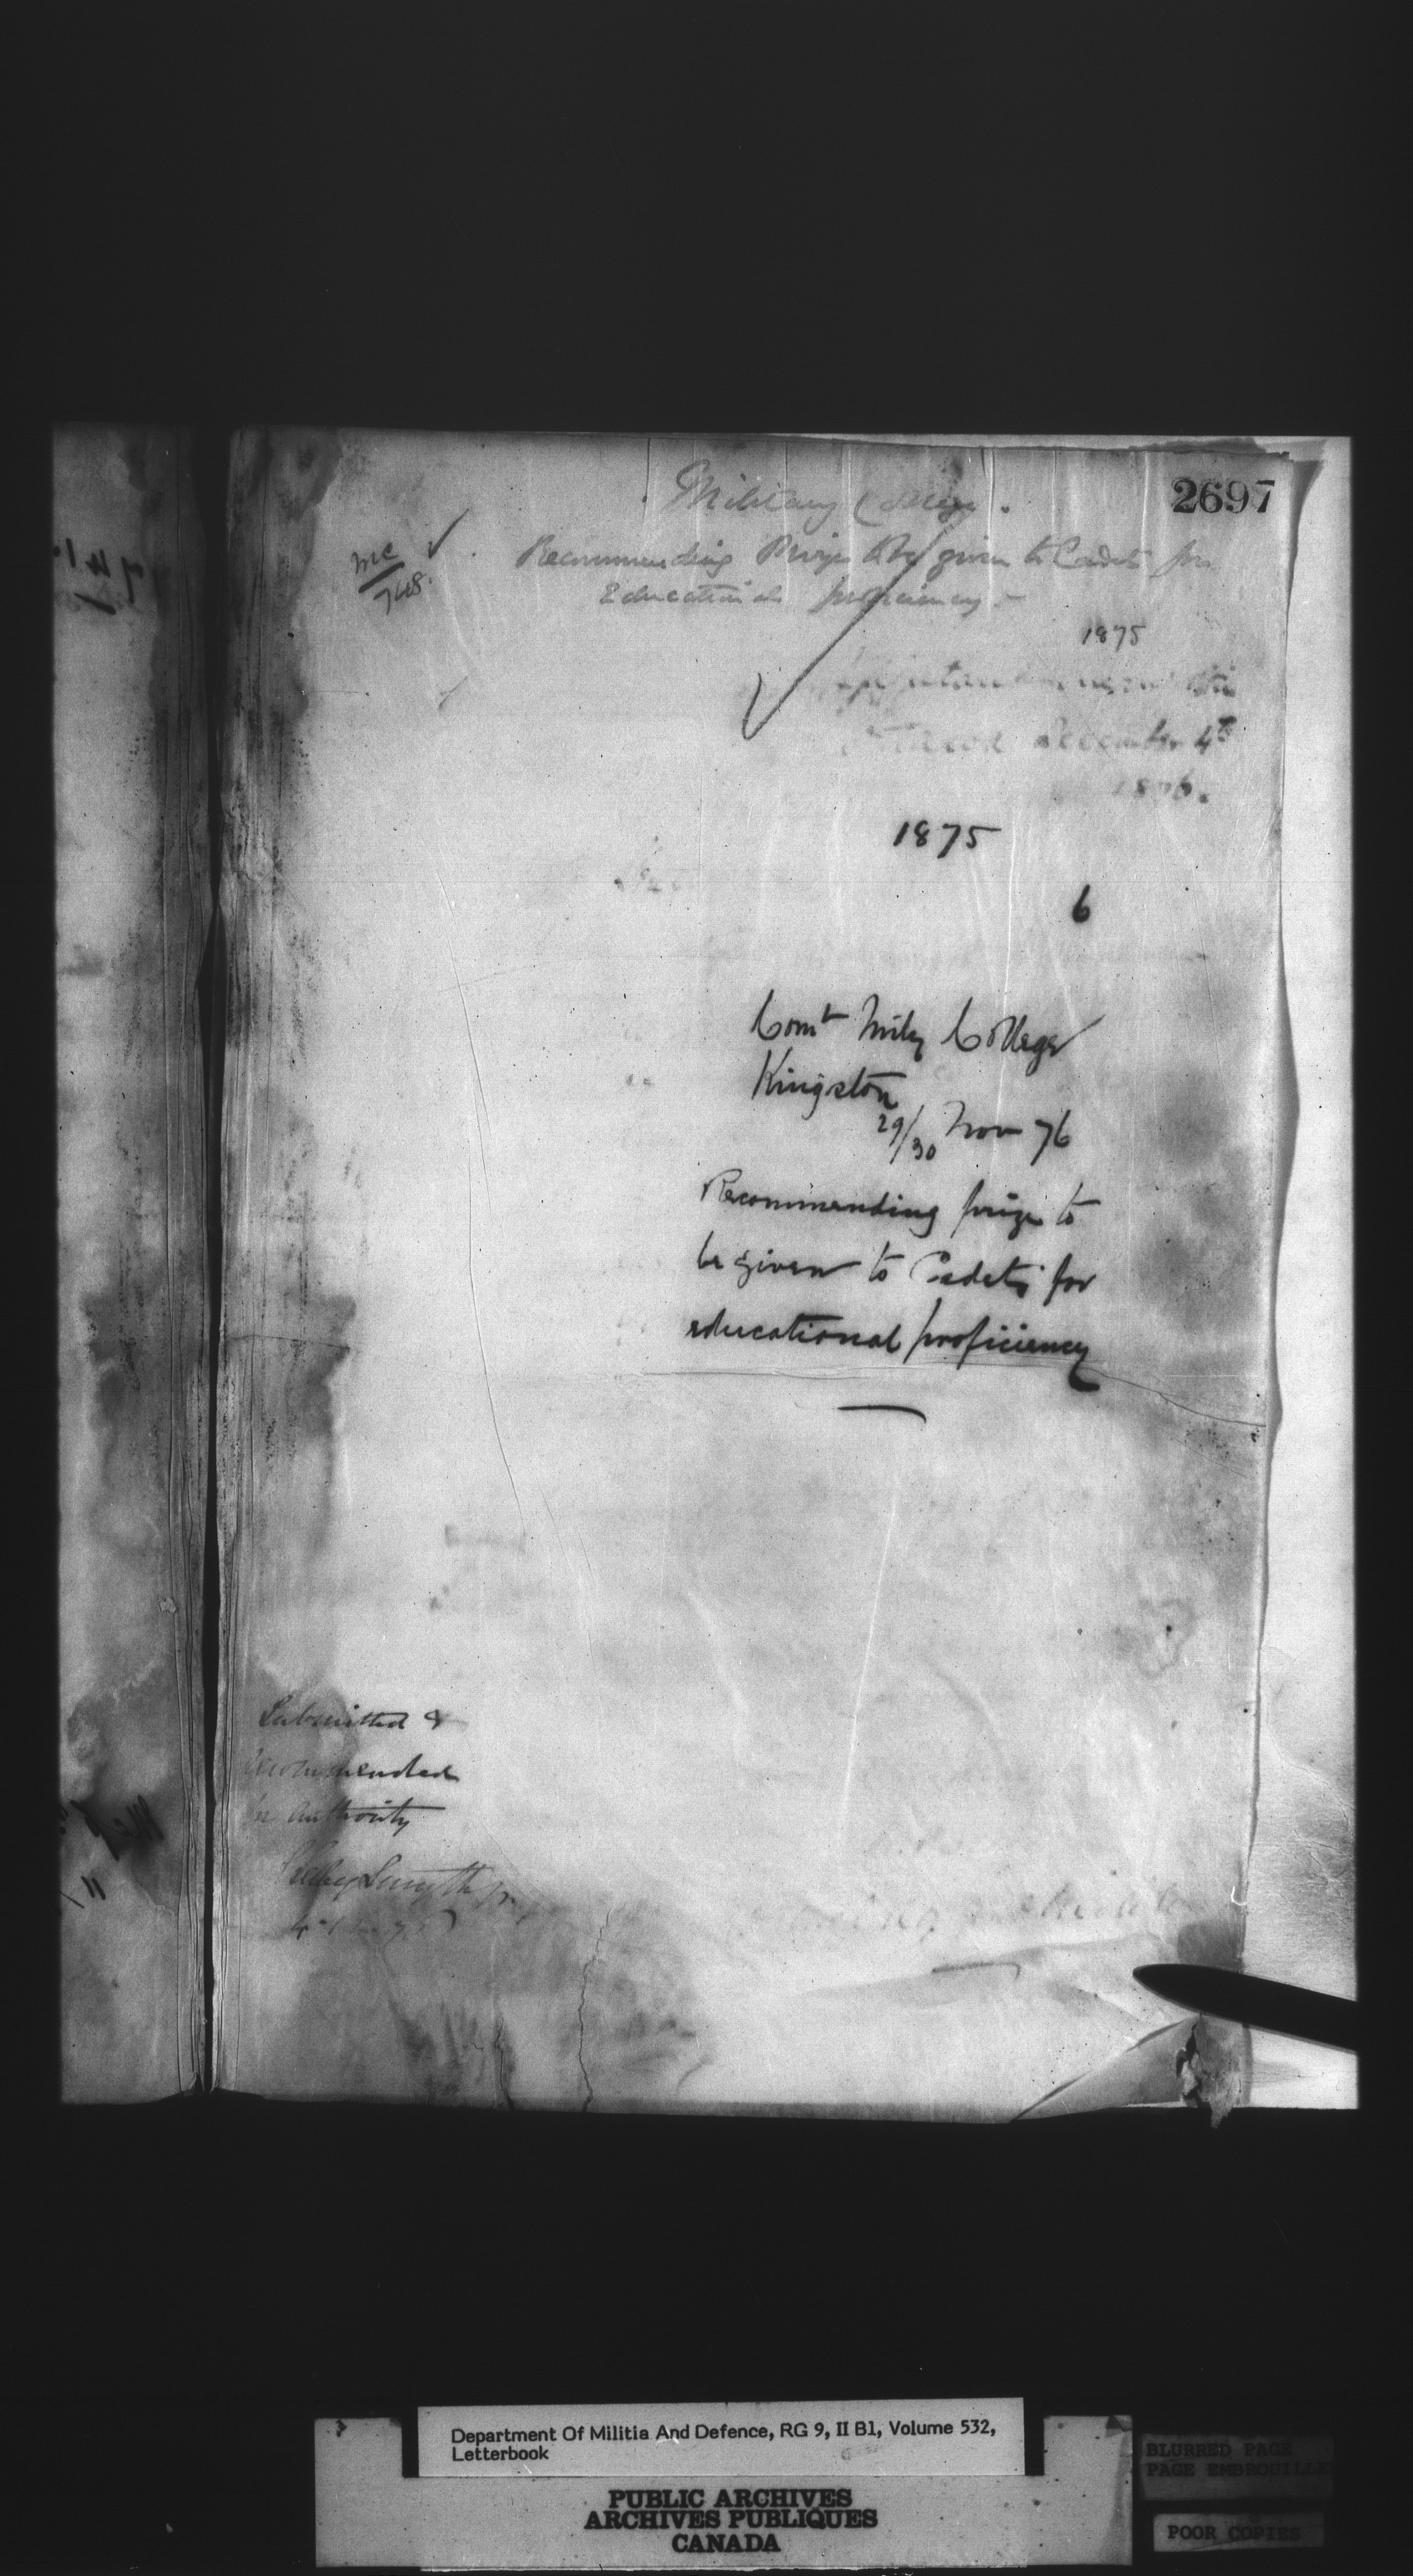 2697
Military College.
MC
748.
Recommending Prize to be given to Cadets for
Educational proficiency.-
1875
December 4th
1876.
1875
6
Comt Mily College
Kingston
29/30 Nov 76
Recommending prize to
be given to Cadets for
educational proficiency
Submitted &
recommended
authority
Selby Smyth
Department Of Militia And Defence, RG 9, II B1, Volume 532,
Letterbook
PUBLIC ARCHIVES
ARCHIVES PUBLIQUES
CANADA
BLURRED PAGE
PAGE EMBROUILLE
POOR COPIES